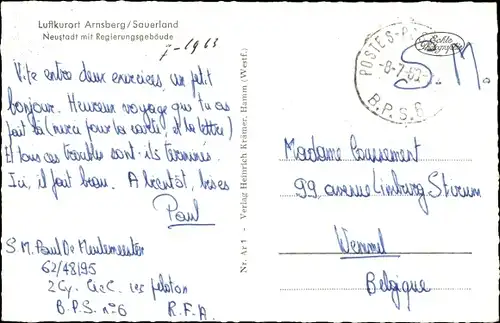 Luftkurort Arnsberg/Sauerland
Neustadt mit Regierungsgebäude
7-1963
Vite entre deux exercices, un petit
bonjour. Heureux voyage que tu as
fait là (merci pour la carte, et la lettre)
Et tous ces troubles sont-ils terminés.
Ici, il fait beau. A bientôt, bises
Paul
S M. Paul De Meulemeester
62/48195
2 Cy. 1er peloton
B.P.S. n°6 R.F.A.
Nr. Ar 1 - Verlag Heinrich Krämer, Hamm (Westf.)
POSTES-
-8-7-
B.P.S.6
Echte Photographie
S.M.
Madame Coussement
99 avenue Limburg Stirum
Wemmel
Belgique